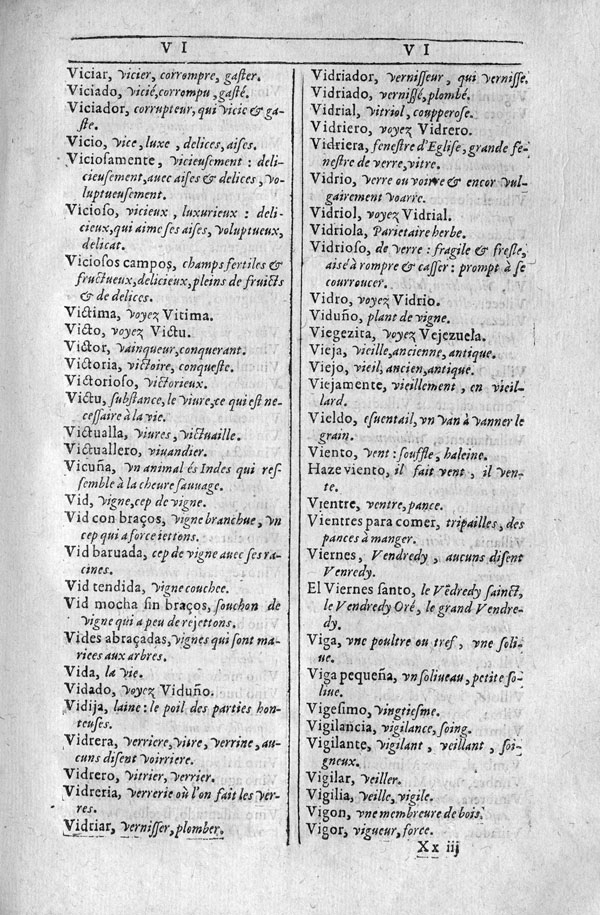 V I
Viciar, vicier, corrompre, gaster.
Viciado, vicié, corrompu, gasté.
Viciador, corrupteur, qui vicie & ga-
ste.
Vicio, vice, luxe, delices, aises.
Viciosamente, vicieusement : deli-
cieusement, auec aises & delices, vo-
luptueusement.
Vicioso, vicieux, luxurieux : deli-
cieux, qui aime ses aises, voluptueux,
delicat.
Viciosos campos, champs fertiles &
fructueux, delicieux, pleins de fruicts
& de delices.
Victima, voyez Vitima.
Victo, voyez Victu.
Victor, vainqueur, conquerant.
Victoria, victoire, conqueste.
Victorioso, victorieux.
Victu, substance, le viure, ce qui est ne-
cessaire à la vie.
Victualla, viures, victuaille.
Victuallero, viuandier.
Vicuña, vn animal és Indes qui res-
semble à la cheure sauuage.
Vid, vigne, cep de vigne.
Vid con braços, vigne branchue, vn
cep qui a force iettons.
Vid baruada, cep de vigne auec ses ra-
cines.
Vid tendida, vigne couchee.
Vid mocha sin braços, souchon de
vigne qui a peu de rejettons.
Vides abraçadas, vignes qui sont ma-
riees aux arbres.
Vida, la vie.
Vidado, voyez Viduño.
Vidija, laine : le poil des parties hon-
teuses.
Vidrera, verriere, vitre, verrine, au-
cuns disent voirriere.
Vidrero, vitrier, verrier.
Vidreria, verrerie où l'on fait les ver-
res.
Vidriar, vernisser, plomber.
V I
Vidriador, vernisseur, qui vernisse.
Vidriado, vernissé, plombé.
Vidrial, vitriol, coupperose.
Vidriero, voyez Vidrero.
Vidriera, fenestre d'Eglise, grande fe-
nestre de verre, vitre.
Vidrio, verre ou voirre & encor vul-
gairement voarre.
Vidriol, voyez Vidrial.
Vidriola, Parietaire herbe.
Vidrioso, de verre : fragile & fresle,
aisé à rompre & casser : prompt à se
courroucer.
Vidro, voyez Vidrio.
Viduño, plant de vigne.
Viegezita, voyez Vejezuela.
Vieja, vieille, ancienne, antique.
Viejo, vieil, ancien, antique.
Viejamente, vieillement, en vieil-
lard.
Vieldo, esuentail, vn van à vanner le
grain.
Viento, vent : souffle, haleine.
Haze viento, il fait vent, il ven-
te.
Vientre, ventre, pance.
Vientres para comer, tripailles, des
pances à manger.
Viernes, Vendredy, aucuns disent
Venredy.
El Viernes santo, le Vẽdredy sainct,
le Vendredy Oré, le grand Vendre-
dy.
Viga, vne poultre ou tref, vne soli-
ue.
Viga pequeña, vn soliueau, petite so-
liue.
Vigesimo, vingtiesme.
Vigilancia, vigilance, soing.
Vigilante, vigilant, veillant, soi-
gneux.
Vigilar, veiller.
Vigilia, veille, vigile.
Vigon, vne membreure de bois.
Vigor, vigueur, force.
Xx iij